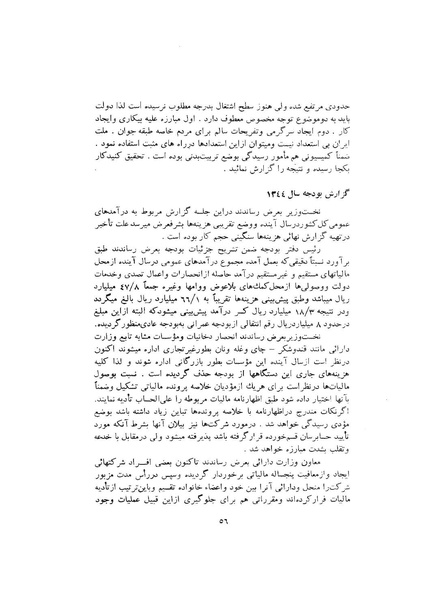 حدودی مرتفع شده ولی هنوز سطح اشتغال بدرجه مطلوب نرسیده است لذا دولت
باید به دوموضوع توجه مخصوص معطوف دارد . اول مبارزه علیه بیکاری وایجاد
کار . دوم ایجاد سرگرمی وتفریحات سالم برای مردم خاصه طبقه جوان . ملت
ایران بی استعداد نیست ومیتوان ازاین استعدادها درراه های مثبت استفاده نمود .
ضمناً کمیسیونی هم مأمور رسیدگی بوضع تربیت‌بدنی بوده است . تحقیق کنیدکار
بکجا رسیده و نتیجه را گزارش نمائید .
گزارش بودجه سال ۱۳٤٤
نخست‌وزیر بعرض رساندند دراین جلسه گزارش مربوط به درآمدهای
عمومی‌کل‌کشوردرسال آینده ووضع تقریبی هزینه‌ها بشرفعرض میرسدعلت تأخیر
درتهیه گزارش نهائی هزینه‌ها سنگینی حجم کار بوده است .
رئیس دفتر بودجه ضمن تشریح جزئیات بودجه بعرض رساندند طبق
برآورد نسبتاً دقیقی‌که بعمل آمده مجموع درآمدهای عمومی درسال آینده ازمحل
مالیاتهای مستقیم و غیرمستقیم درآمد حاصله ازانحصارات واعمال تصدی وخدمات
دولت ووصولی‌ها ازمحل‌کمك‌های بلاعوض ووامها وغیره جمعاً ٤٧/٨ میلیارد
ریال میباشد وطبق پیش‌بینی هزینه‌ها تقریباً به ٦٦/١ میلیارد ریال بالغ میگردد
ودر نتیجه ١٨/٣ میلیارد ریال کسر درآمد پیش‌بینی میشودکه البته ازاین مبلغ
درحدود ٨ میلیاردریال رقم انتقالی ازبودجه عمرانی به‌بودجه عادی‌منظورگردیده.
نخست‌وزیربعرض رساندند انحصار دخانیات ومؤسسات مشابه تابع وزارت
دارائی مانند قندوشکر – چای وغله ونان بطورغیرتجاری اداره میشوند اکنون
درنظر است ازسال آینده این مؤسسات بطور بازرگانی اداره شوند و لذا کلیه
هزینه‌های جاری این دستگاهها از بودجه حذف گردیده است . نسبت بوصول
مالیات‌ها درنظراست برای هریك ازمؤدیان خلاصه پرونده مالیاتی تشکیل وضمناً
بآنها اختیار داده شود طبق اظهارنامه مالیات مربوطه را علی‌الحساب تأدیه نمایند.
اگرنکات مندرج دراظهارنامه با خلاصه پرونده‌ها تباین زیاد داشته باشد بوضع
مؤدی رسیدگی خواهد شد . درمورد شرکت‌ها نیز بیلان آنها بشرط آنکه مورد
تأیید حسابرسان قسم‌خورده قرارگرفته باشد پذیرفته میشود ولی درمقابل با خدعه
وتقلب بشدت مبارزه خواهد شد .
معاون وزارت دارائی بعرض رساندند تاکنون بعضی افراد شرکتهائی
ایجاد وازمعافیت پنجساله مالیاتی برخوردار گردیده وسپس دررأس مدت مزبور
شرکت‌را منحل ودارائی آنرا بین خود واعضاء خانواده تقسیم وباین‌ترتیب ازتأدیه
مالیات فرارکرده‌اند ومقرراتی هم برای جلوگیری ازاین قبیل عملیات وجود
٥٦